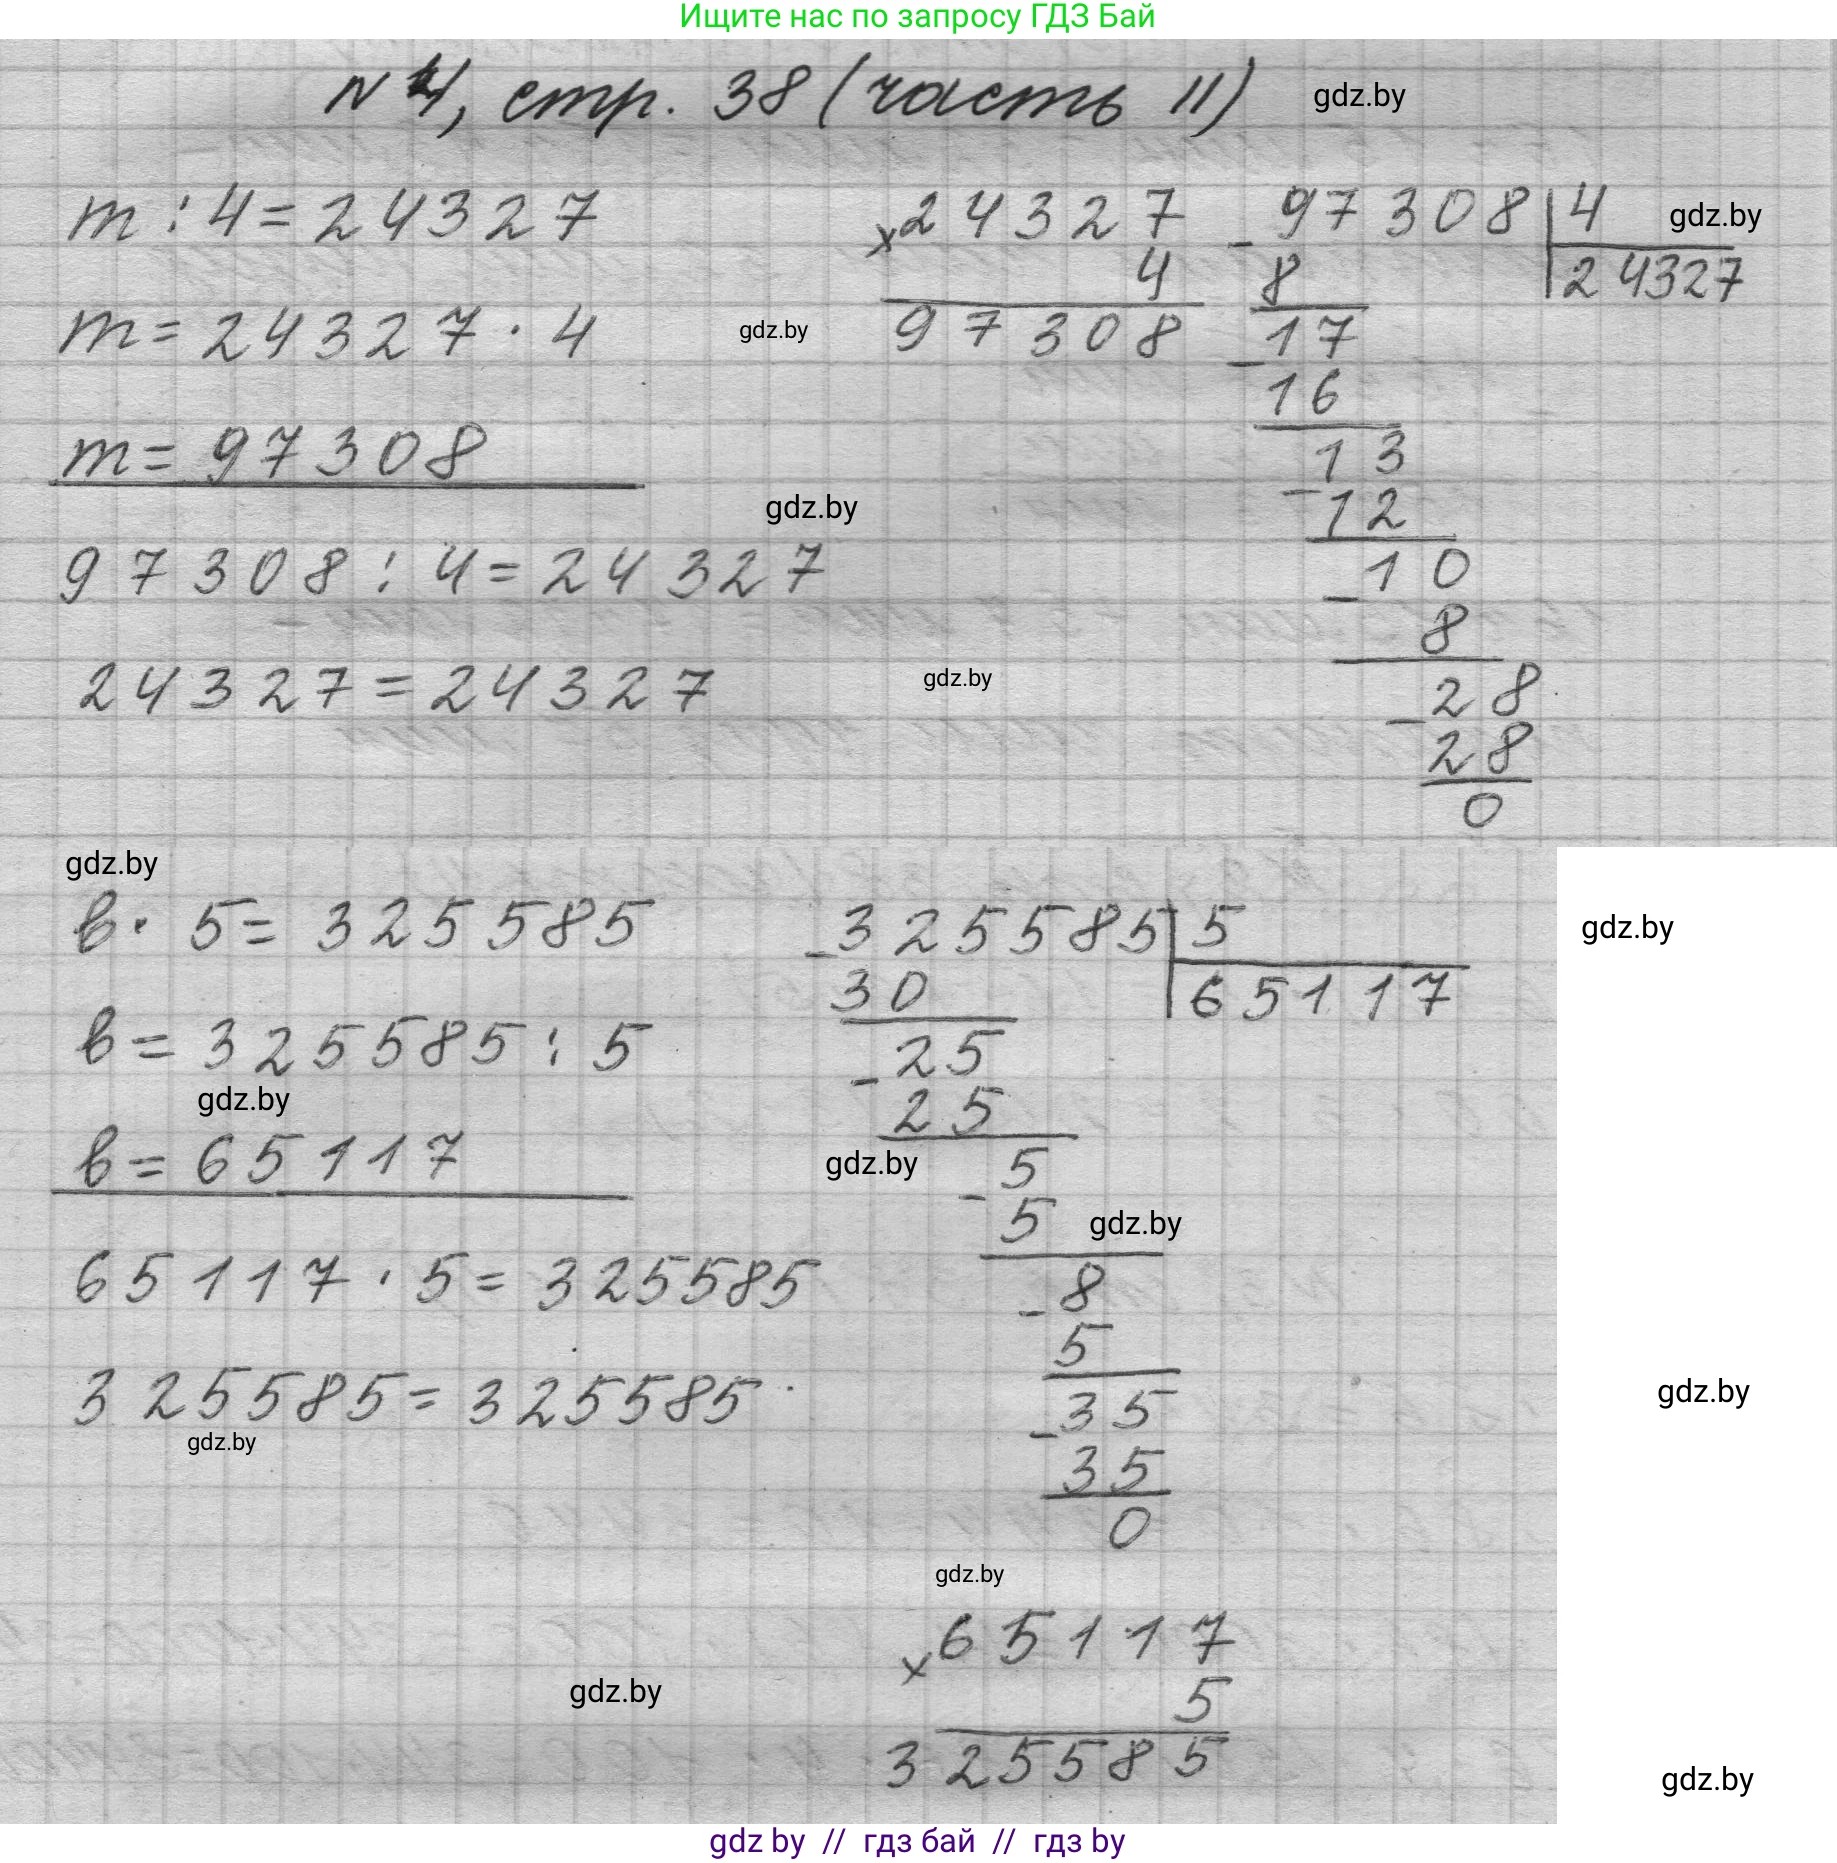 Ищите нас по запросу ГДЗ Бай
N 4, стр. 38 (часть II) gdz.by
m : 4 = 24327
m = 24327 · 4
m = 97308
97308 : 4 = 24327
24327 = 24327
gdz.by
gdz.by
gdz.by
× 24327
4
97308
- 97308 | 4 gdz.by
8 24327
- 17
16
- 13
12
- 10
8
- 28
28
0
gdz.by
в · 5 = 325585
в = 325585 : 5
gdz.by
в = 65117
65117 · 5 = 325585
325585 = 325585
gdz.by
- 325585 | 5 gdz.by
30 65117
- 25
25
gdz.by
- 5
5 gdz.by
- 8
5
- 35 gdz.by
35
0
gdz.by
× 65117
5
gdz.by
325585
gdz.by
gdz by // гдз бай // гдз by